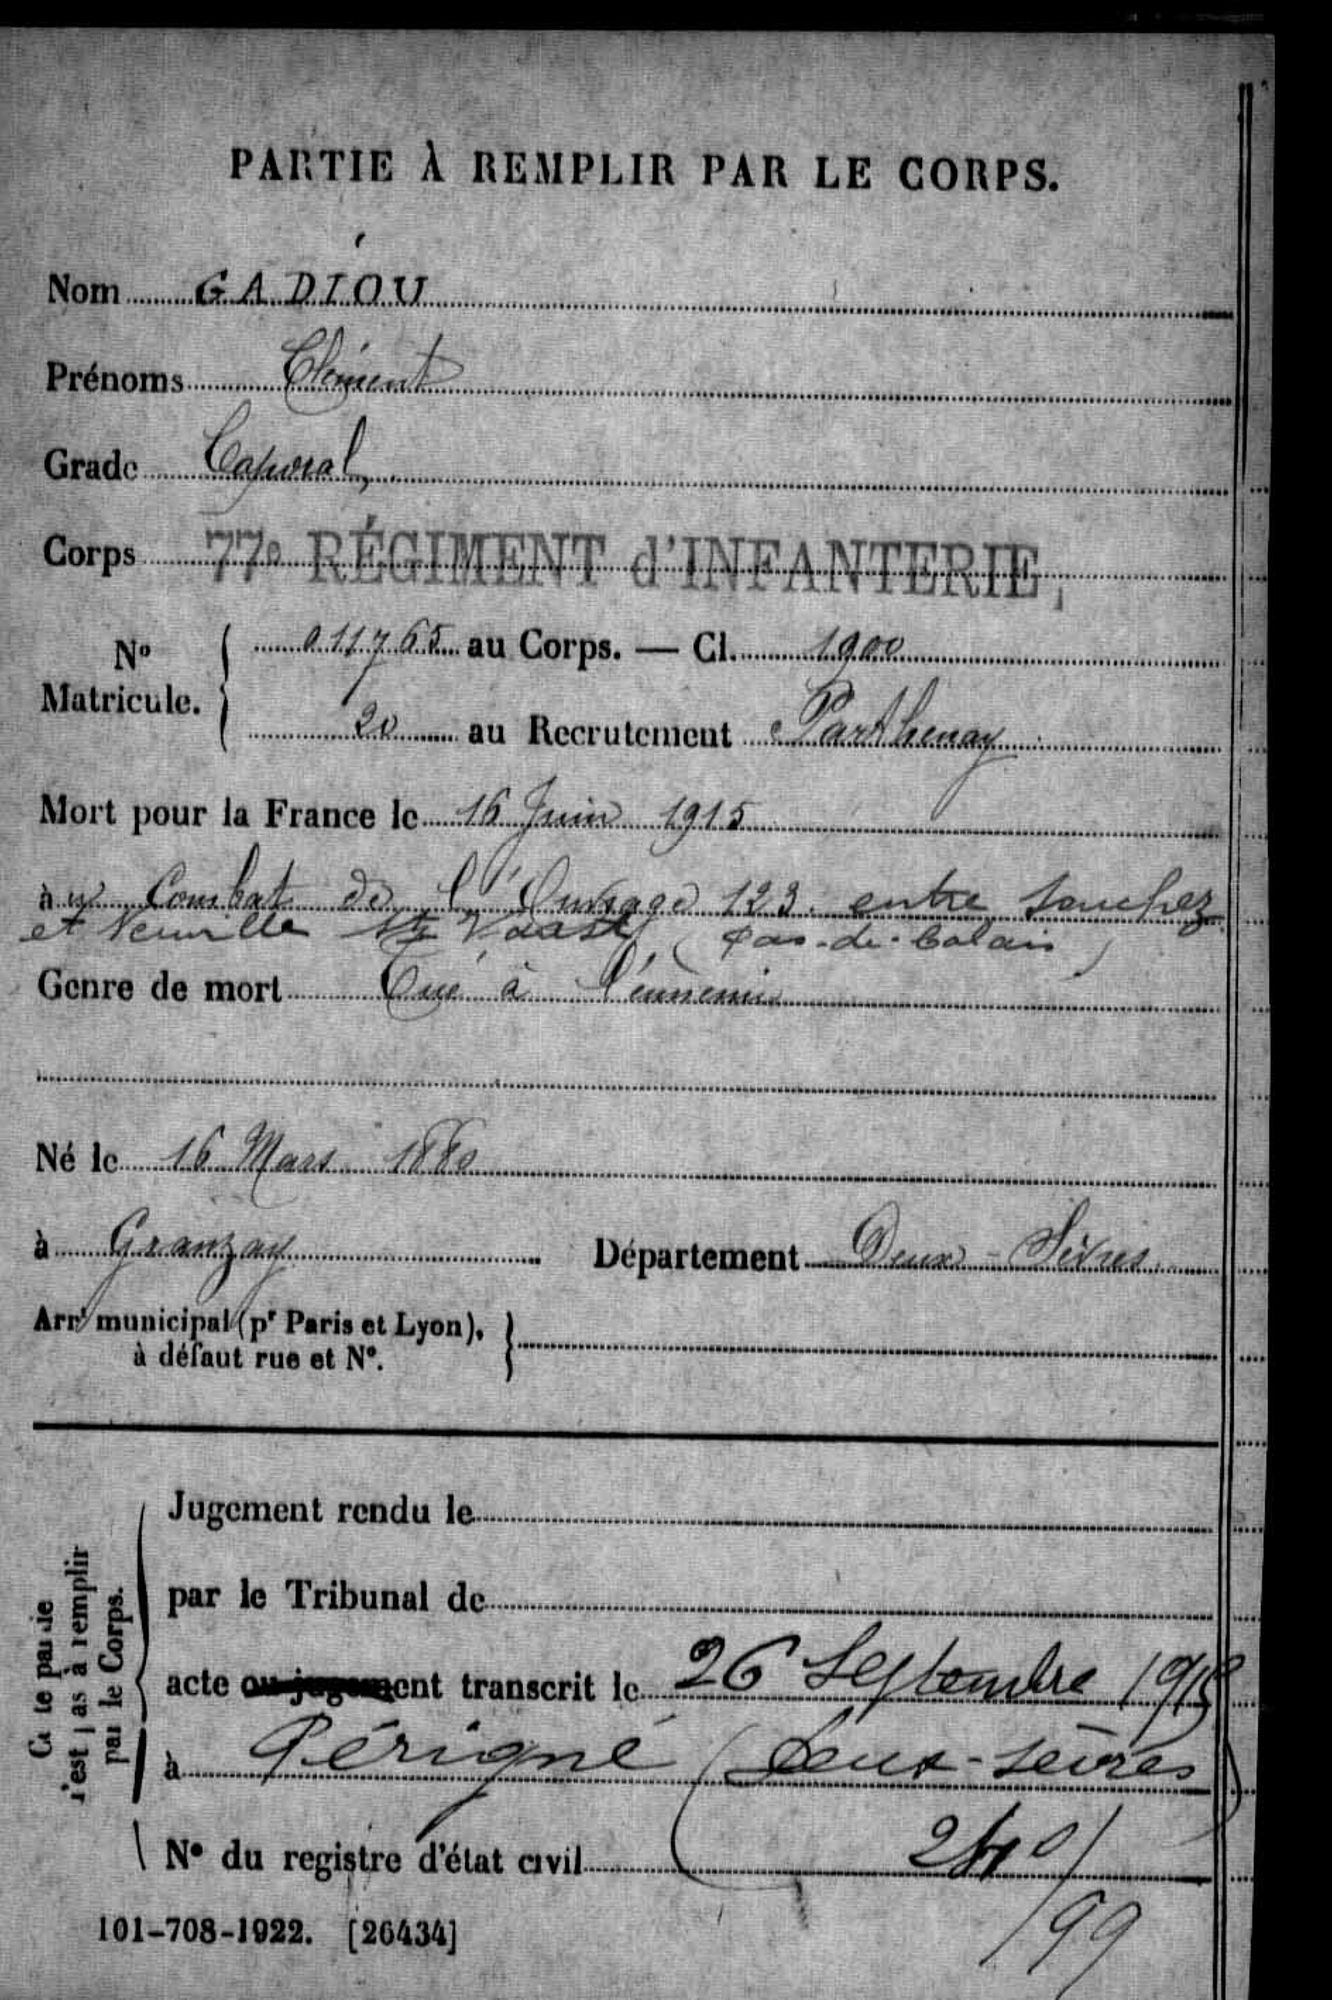 PARTIE À REMPLIR PAR LE CORPS.
Nom GADIOU
Prénoms Clément
Grade Caporal,
Corps 77e RÉGIMENT d'INFANTERIE,
No Matricule. 011765 au Corps. — Cl. 1900
20 au Recrutement Parthenay
Mort pour la France le 16 Juin 1915
à u Combat de l'Ouvrage 123. entre Souchez
et Neuville St Vaast (Pas-de-Calais)
Genre de mort Tué à l'ennemi
Né le 16 Mars 1880
à Granzay Département Deux-Sèvres
Arrt municipal (pr Paris et Lyon), à défaut rue et No.
Cette partie n'est pas à remplir par le Corps.
Jugement rendu le
par le Tribunal de
acte ou jugement transcrit le 26 Septembre 1915
à Périgné (Deux-Sèvres)
No du registre d'état civil
101-708-1922. [26434]
/99